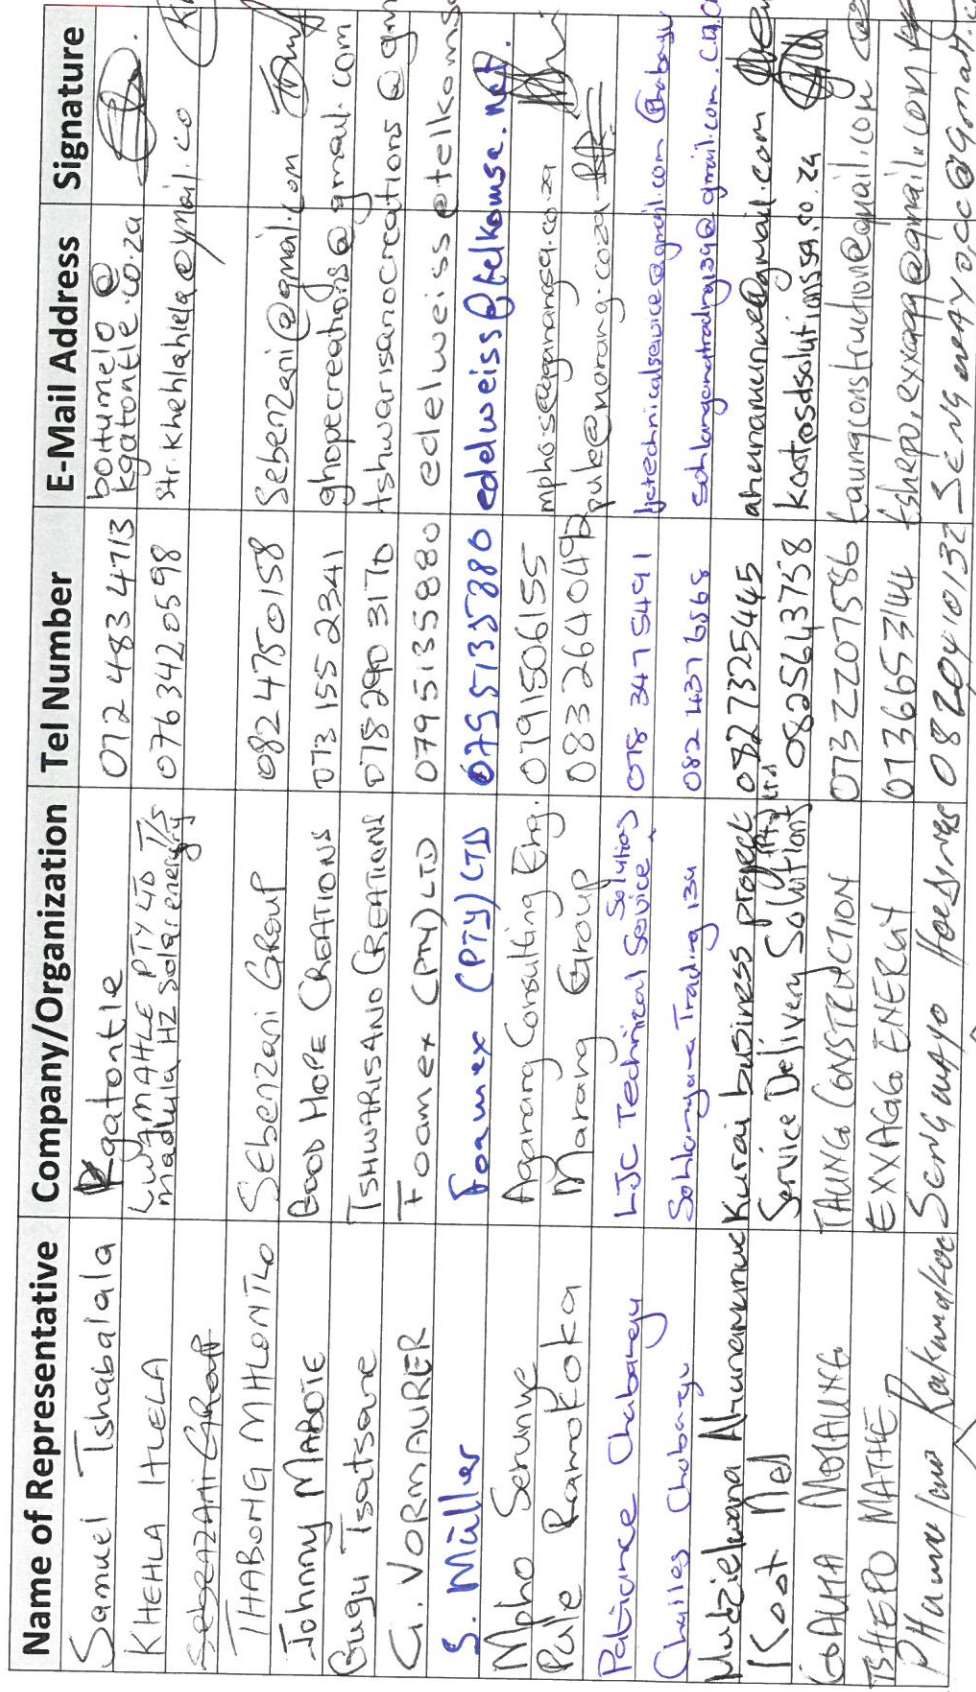 Name of Representative Company/Organization Tel Number E-Mail Address Signature
Samuel Tshabalala Kgatontle 072 483 4713 boitumelo @
kgatontle.co.za
KHEHLA HLELA LWAMAHLE PTY LTD T/S
Madula HZ Solar energy 076 342 0598 Str.khehlahlela@ymail.co
SebenzANi GRouP
THABONG MHLONTLO Sebenzani GRouP 082 4750158 Sebenzani@gmail.com
Johnny MABOTE Good HOPE CREATIONS 073 155 2341 ghopecreations@gmail.com
Bugu Tsatsane TSHWARISANO CREATIONS 078 290 3170 tshwarisanocreations@gm
G. VORMAURER Foamex (PTY) LTD 0795135880 edelweiss@telkomsa
S. Müller Foamex (PTY) LTD 0795135880 edelweiss@telkomsa.net.
Mpho Serunye Aganang Consulting Eng. 0791506155 mphos@aganangsa.co.za
Pule Ramokoka Marang Group 083 264 0492 pule@morang.co.za
Patiance Chabangu LJC Technical Solution
Service 078 347 5491 ljctechnicalservice@gmail.com Chabangu
Challes Chabangu Sahlangana Trading 134 082 437 6568 sahlanganatrading134@gmail.com
Mudzielwana Khunamunwe Kurai business project 0827325445 ahunamunwe@gmail.com
Koot Nel Service Delivery Solutions (Pty) Ltd 0825643758 koot@sdsolutionssa.co.za
GOAHA MOTAUNG TAUNG CONSTRUCTION 0732207586 taungconstruction@gmail.com
TSHEPO MATHE EXXAGG ENERGY 0136653144 tshepo.exxagg@gmail.com
Senguayo Hoesings 0820410132